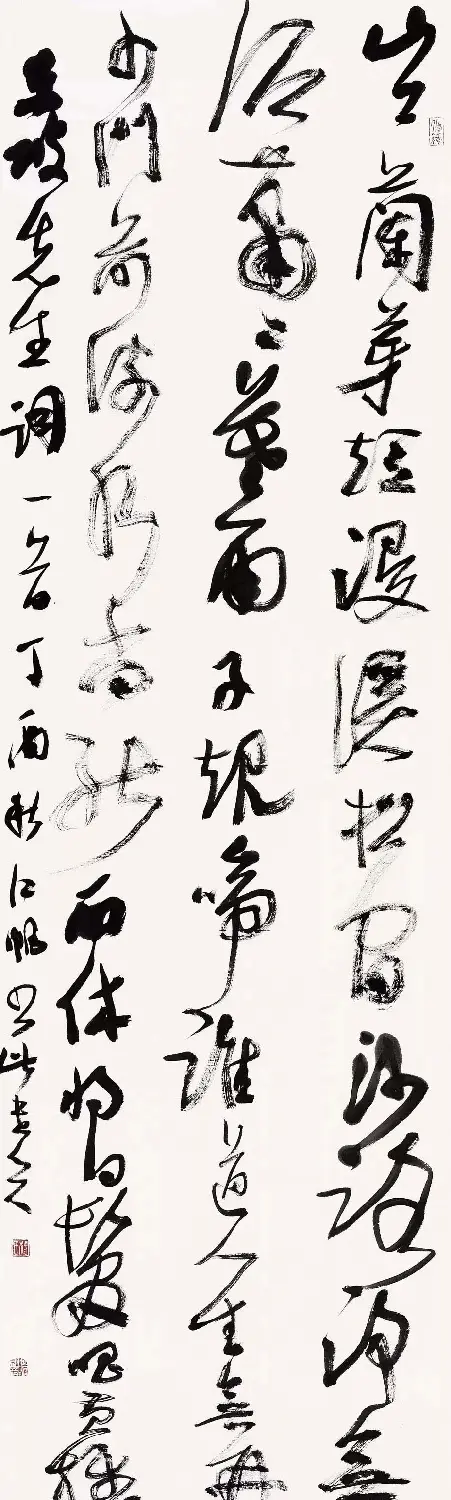 山下蘭芽短浸溪松間沙路淨無
泥蕭〻暮雨子規啼誰道人生無再
少門前流水尚能西休將白髮唱黃雞
東坡先生詞一首丁酉秋江帆